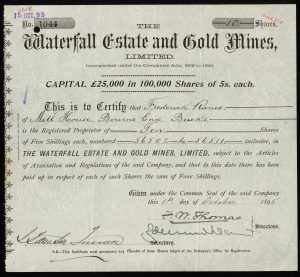 15 OCT. 95
No. 1044 10 Shares.
THE
Waterfall Estate and Gold Mines,
LIMITED.
Incorporated under the Companies Acts, 1862 to 1890.
CAPITAL £25,000 in 100,000 Shares of 5s. each.
This is to Certify that Frederick
of Mill House, Bourne End Bucks
is the Registered Proprietor of Ten Shares
of Five Shillings each, numbered 36502 to 36511 inclusive, in
THE WATERFALL ESTATE AND GOLD MINES, LIMITED, subject to the Articles
of Association and Regulations of the said Company, and that to this date there has been
paid up in respect of each of such Shares the sum of Four Shillings.
Given under the Common Seal of the said Company
this 1st day of October 1895
W. Thomas
Directors.
Secretary.
N.B.—This Certificate must accompany any Transfer of Shares lodged at the Company's Office for Registration.